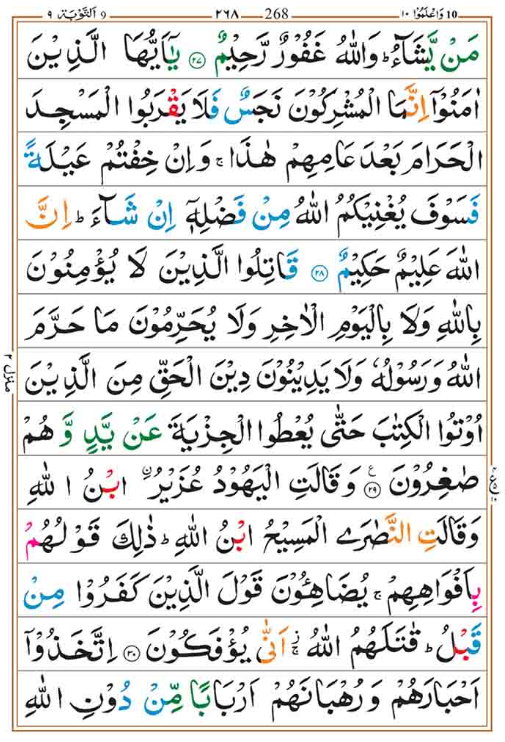 10 وَاعْلَمُوْٓا ١٠ 268 ٢٦٨ اَلتَّوْبَة ٩ 9
مَنْ يَّشَآءُ ؕ وَاللّٰهُ غَفُوْرٌ رَّحِيْمٌ ﴿۲۷﴾ يٰۤاَيُّهَا الَّذِيْنَ
اٰمَنُوْۤا اِنَّمَا الْمُشْرِكُوْنَ نَجَسٌ فَلَا يَقْرَبُوا الْمَسْجِدَ
الْحَرَامَ بَعْدَ عَامِهِمْ هٰذَا ۚ وَاِنْ خِفْتُمْ عَيْلَةً
فَسَوْفَ يُغْنِيْكُمُ اللّٰهُ مِنْ فَضْلِهٖۤ اِنْ شَآءَ ؕ اِنَّ
اللّٰهَ عَلِيْمٌ حَكِيْمٌ ﴿۲۸﴾ قَاتِلُوا الَّذِيْنَ لَا يُؤْمِنُوْنَ
بِاللّٰهِ وَلَا بِالْيَوْمِ الْاٰخِرِ وَلَا يُحَرِّمُوْنَ مَا حَرَّمَ
اللّٰهُ وَرَسُوْلُهٗ وَلَا يَدِيْنُوْنَ دِيْنَ الْحَقِّ مِنَ الَّذِيْنَ
اُوْتُوا الْكِتٰبَ حَتّٰى يُعْطُوا الْجِزْيَةَ عَنْ يَّدٍ وَّ هُمْ
صٰغِرُوْنَ ﴿۲۹﴾ ع وَقَالَتِ الْيَهُوْدُ عُزَيْرُ اۨبْنُ اللّٰهِ
وَقَالَتِ النَّصٰرَى الْمَسِيْحُ ابْنُ اللّٰهِ ؕ ذٰلِكَ قَوْلُهُمْ
بِاَفْوَاهِهِمْ ۚ يُضَاهِئُوْنَ قَوْلَ الَّذِيْنَ كَفَرُوْا مِنْ
قَبْلُ ؕ قٰتَلَهُمُ اللّٰهُ ۚ اَنّٰى يُؤْفَكُوْنَ ﴿۳۰﴾ اِتَّخَذُوْۤا
اَحْبَارَهُمْ وَرُهْبَانَهُمْ اَرْبَابًا مِّنْ دُوْنِ اللّٰهِ
منزل ٢